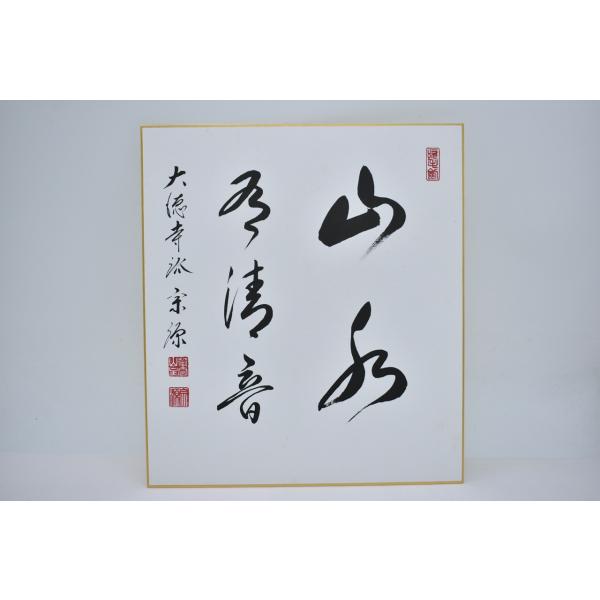 山水
有清音
大徳寺派 宗源